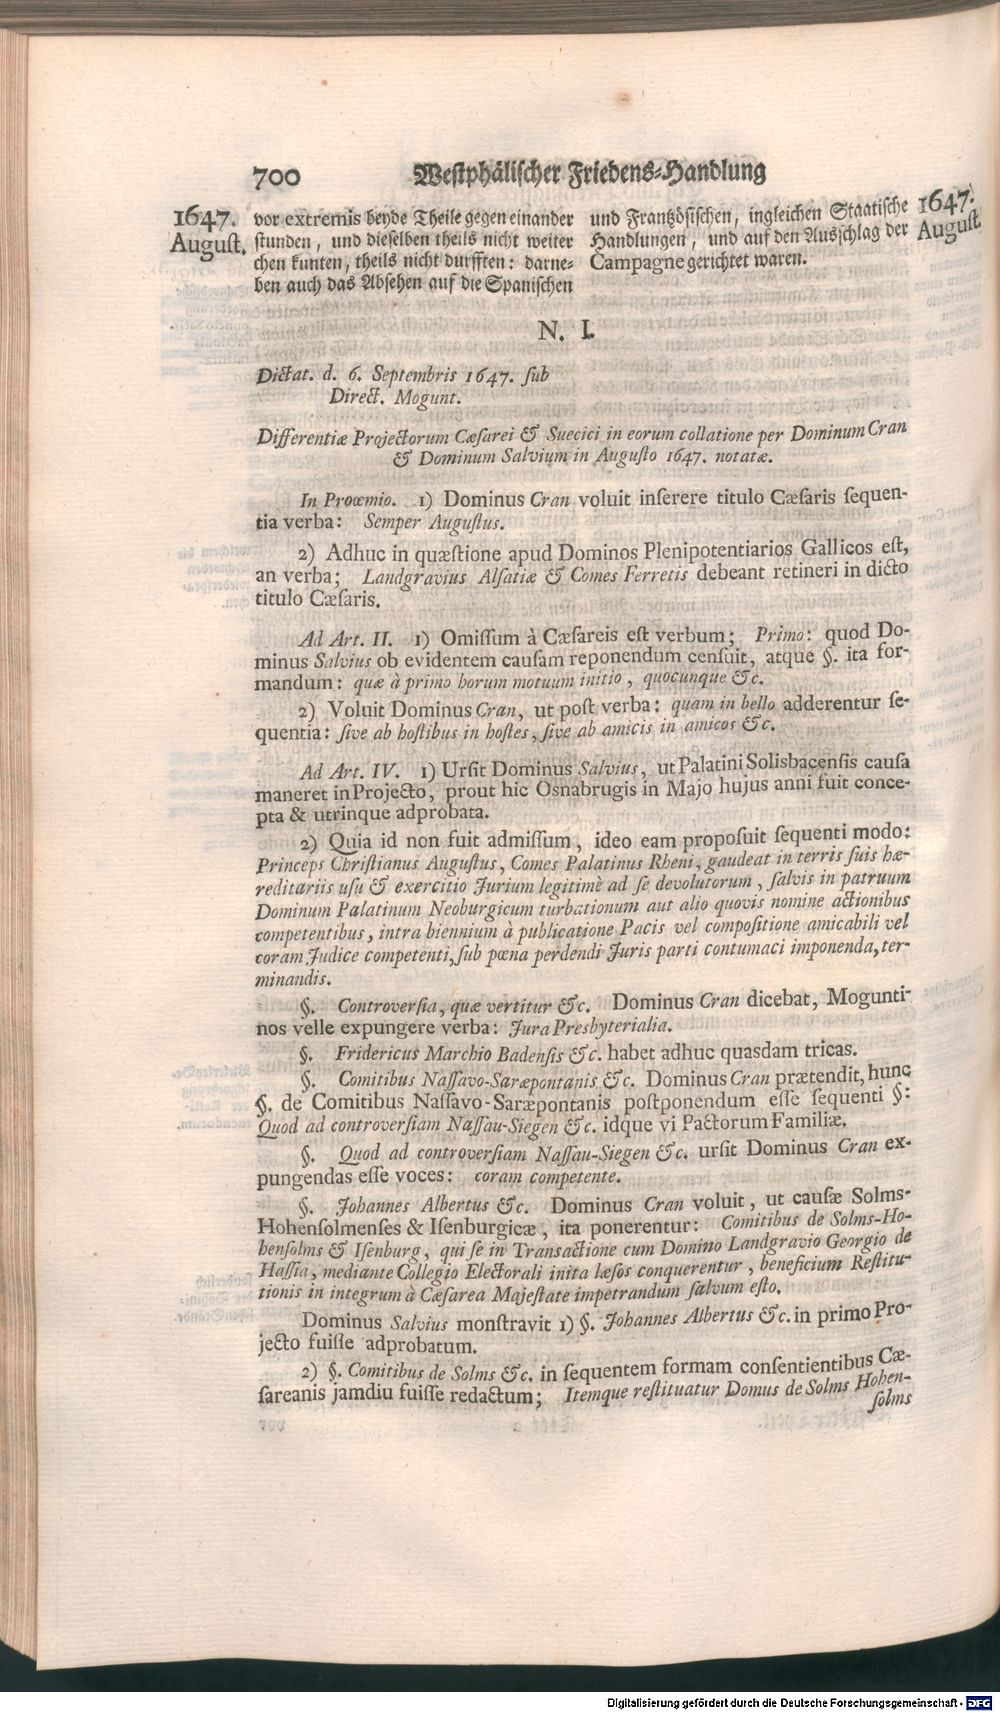 700 Westphälischer Friedens-Handlung
1647.
August.
vor extremis beyde Theile gegen einander
stunden, und dieselben theils nicht weiter
chen kunten, theils nicht durfften: darne-
ben auch das Absehen auf die Spanischen
und Frantzösischen, ingleichen Staatische
Handlungen, und auf den Ausschlag der
Campagne gerichtet waren.
1647.
August.
N. I.
Dictat. d. 6. Septembris 1647. sub
Direct. Mogunt.
Differentiæ Projectorum Cæsarei & Suecici in eorum collatione per Dominum Cran
& Dominum Salvium in Augusto 1647. notatæ.
In Proœmio. 1) Dominus Cran voluit inserere titulo Cæsaris sequen-
tia verba: Semper Augustus.
2) Adhuc in quæstione apud Dominos Plenipotentiarios Gallicos est,
an verba; Landgravius Alsatiæ & Comes Ferretis debeant retineri in dicto
titulo Cæsaris.
Ad Art. II. 1) Omissum à Cæsareis est verbum; Primo: quod Do-
minus Salvius ob evidentem causam reponendum censuit, atque §. ita for-
mandum: quæ à primo horum motuum initio, quocunque &c.
2) Voluit Dominus Cran, ut post verba: quam in bello adderentur se-
quentia: sive ab hostibus in hostes, sive ab amicis in amicos &c.
Ad Art. IV. 1) Ursit Dominus Salvius, ut Palatini Solisbacensis causa
maneret in Projecto, prout hic Osnabrugis in Majo hujus anni fuit conce-
pta & utrinque adprobata.
2) Quia id non fuit admissum, ideo eam proposuit sequenti modo:
Princeps Christianus Augustus, Comes Palatinus Rheni, gaudeat in terris suis hæ-
reditariis usu & exercitio Jurium legitimè ad se devolutorum, salvis in patruum
Dominum Palatinum Neoburgicum turbationum aut alio quovis nomine actionibus
competentibus, intra biennium à publicatione Pacis vel compositione amicabili vel
coram Judice competenti, sub pœna perdendi Juris parti contumaci imponenda, ter-
minandis.
§. Controversia, quæ vertitur &c. Dominus Cran dicebat, Mogunti-
nos velle expungere verba: Jura Presbyterialia.
§. Fridericus Marchio Badensis &c. habet adhuc quasdam tricas.
§. Comitibus Nassavo-Saræpontanis &c. Dominus Cran prætendit, hunc
§. de Comitibus Nassavo-Saræpontanis postponendum esse sequenti §:
Quod ad controversiam Nassau-Siegen &c. idque vi Pactorum Familiæ.
§. Quod ad controversiam Nassau-Siegen &c. ursit Dominus Cran ex-
pungendas esse voces: coram competente.
§. Johannes Albertus &c. Dominus Cran voluit, ut causæ Solms-
Hohensolmenses & Isenburgicæ, ita ponerentur: Comitibus de Solms-Ho-
hensolms & Isenburg, qui se in Transactione cum Domino Landgravio Georgio de
Hassia, mediante Collegio Electorali inita læsos conquerentur, beneficium Restitu-
tionis in integrum à Cæsarea Majestate impetrandum salvum esto.
Dominus Salvius monstravit 1) §. Johannes Albertus &c. in primo Pro-
jecto fuisse adprobatum.
2) §. Comitibus de Solms &c. in sequentem formam consentientibus Cæ-
sareanis jamdiu fuisse redactum; Itemque restituatur Domus de Solms Hohen-
solms
Digitalisierung gefördert durch die Deutsche Forschungsgemeinschaft - DFG